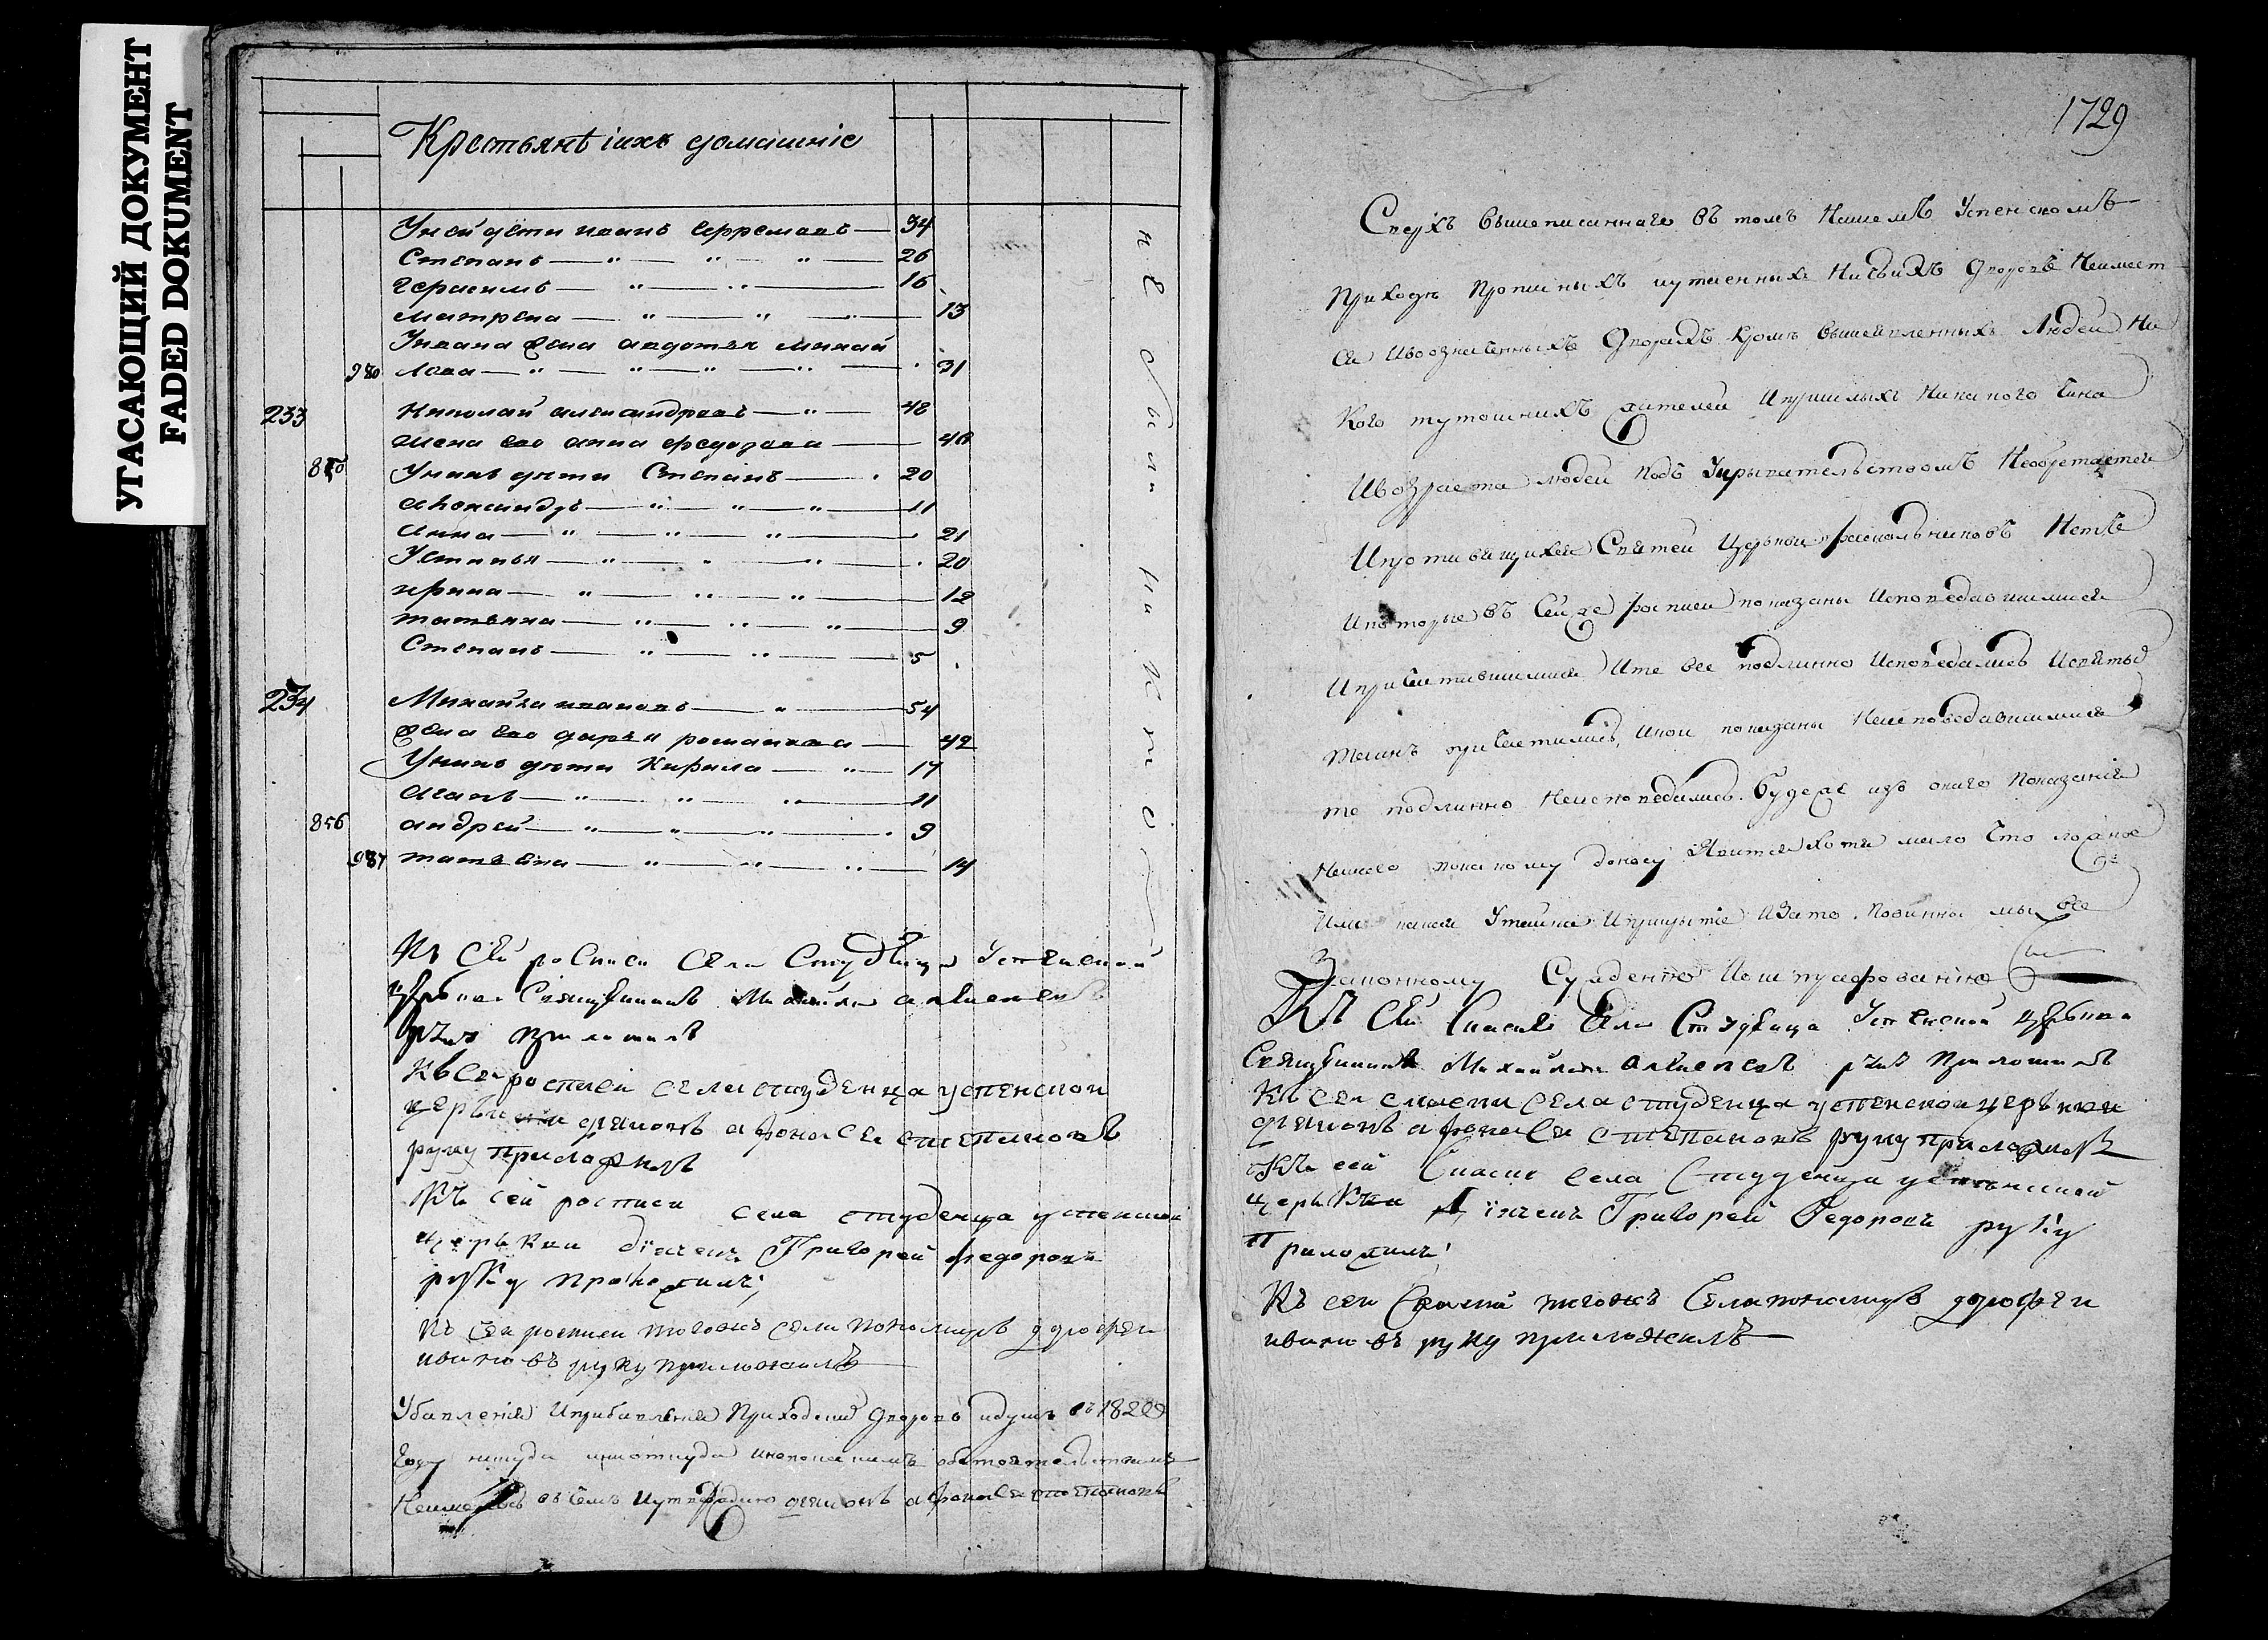 УГАСАЮЩИЙ ДОКУМЕНТ
FADED DOKUMENT
Крестьянѣ iихъ домашнiе
У ней дѣти иванъ ефремовъ — 34
Степанъ — " — " — " — 26
Герасимъ — " — " — 16
матрена — " — " — " — 13
У ивана жена авдотья
980 лова — " — " — " — " — 31
233 Николай александровъ — " — 48
жена ево анна федорова — 40
У нихъ дѣти Степанъ — 20
александръ — " — " — " — 11
анна — " — " — " — 21
Устинья — " — " — " — 20
ирина — " — " — " — 12
татьяна — " — " — " — 9
Степанъ — " — " — 5
234 Михайла ивановъ — " — 54
жена ево дарья романова — 42
У нихъ дѣти Кирила — " — 17
— " — " — " — 11
856 андрей — " — " — " — 9
987 татьяна — " — " — " — 14
Къ сей росписи села Студенца Успенской
церкви Священникъ Михайла алексеевъ
руку приложилъ
Къ сей росписи села студенца успенской
церкви дьяконъ афонасей степановъ
руку приложилъ
Къ сей росписи села студенца успенской
церькви дiячекъ Григорей федоровъ
руку приложилъ
Къ сей росписи тогожъ села пономарь дорофей
ивановъ руку приложилъ
Убавленiя и прибавленiя Приходскихъ дворовъ въ 182
году никуда ни откуда обстоятельствамъ
Неимелось въ чемъ и утверждаю дьяконъ афонасей степановъ
1729
Сверхъ вышеписаннаго въ томъ Нашемъ Успенскомъ
Приходѣ Прописныхъ и утаенныхъ Никакихъ Дворовъ Неимеет
ся и возначенныхъ Дворахъ кромѣ вышеявленныхъ Людей Ни
кого тутошнихъ жителей и пришлыхъ Никакого чина
и возраста людей подъ укрывательствомъ Необретается
и противящихся Святей Церкви раскольниковъ Нетъ
и которые въ сей же росписи показаны исповедавшимися
и приобщившимися и те все подлинно исповедались и святыхъ
таинъ приобщились, и кои показаны Неисповедавшимися
те подлинно Неисповедались. Будеже изъ онаго показанiя
Нашего по какому доносу явится хотя мало что ложное
или какая утайка и прикрытiе и за то повинны мы все
законному суждению и оштрафованию
Къ сей села Студенца Успенской церькви
Священникъ Михайла алексеевъ руку приложилъ
Къ сей села студенца успенской церькви
дьяконъ афонасей степановъ руку приложилъ
Къ сей села Студенца успенской
церькви дiячекъ Григорей Федоровъ руку
Приложилъ
Къ сей тогожъ Села пономарь дорофей
ивановъ руку приложилъ